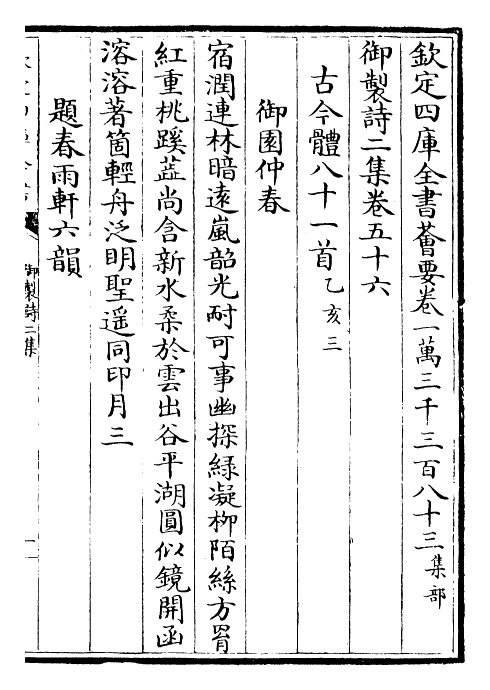 欽定四庫全書薈要卷一萬三千三百八十三集部
御製詩二集卷五十六
古今體八十一首乙亥三
御園仲春
宿潤連林暗遠嵐韶光耐可事幽探綠凝柳陌絲方罥
紅重桃蹊蕋尚含新水柔於雲出谷平湖圓似鏡開函
溶溶著箇輕舟泛明聖遥同印月三
題春雨軒六韻
御製詩二集